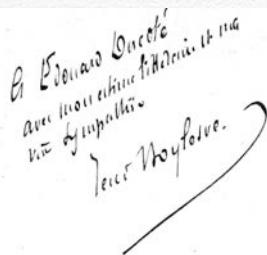 à Edouard Ducoté
avec mon estime littéraire et ma
vive sympathie
René Boylesve.